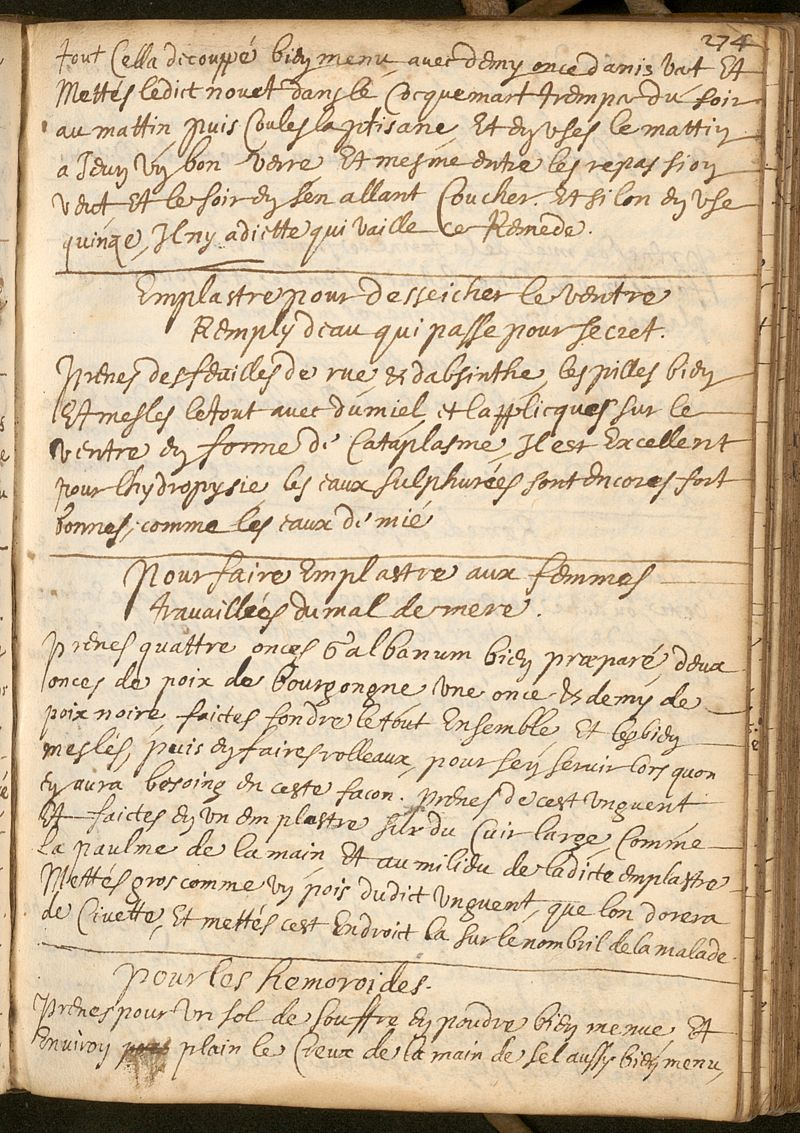 274
tout Cella decouppé bien menu avec demy once danis vert Et
Mettés ledict nouet dans le Cocquemart tremper du soir
au mattin puis Coules la ptisane, Et en uses le mattin
a Jeun un bon verre, Et mesme entre les repas si on
veut Et le soir en sen allant Coucher. Et si lon en use
quinze, Il ny a diette qui vaille ce Remede.
Emplastre pour desseicher le ventre
Remply deau qui passe pour secret.
Prenes des feuilles de rue & dabsinthe, les pilles bien
Et mesles le tout avec du miel, et lapplicques sur le
ventre en forme de Cataplasme, Il est Excellent
pour lhydropysie les eaux sulphurées sont encores fort
bonnes, comme les eaux de mié
Pour faire Emplastre aux femmes
travaillées du mal de mere.
Prenes quattre onces Galbanum bien præparé, deux
onces de poix de Bourgongne une once & demy de
poix noire, faictes fondre le tout Ensemble, Et les bien
meslés, puis en faires rolleaux, pour sen servir lors quon
en aura besoing en ceste facon. Prenes de cest unguent
Et faictes en un emplastre sur du Cuir large, Comme
La paulme de la main Et au milieu de ladicte emplastre
Mettés gros comme un pois dudict unguent, que lon dorera
de Civette, Et mettés cest Endroict la sur le nombril de la malade.
Pour les hemoroides.
Prenes pour un sol de souffre en poudre bien menue, Et
Environ plain le Creux de la main de sel aussy bien menu,